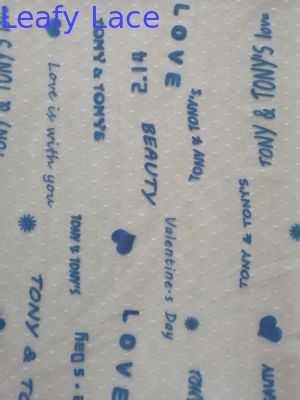 Leafy Lace
LOVE
TONY & TONY'S love
TONY & TONY'S
2.14
TONY & TONY'S
Love is with you
BEAUTY
TONY & TONY'S
Valentine's Day
TONY & TONY'S
TONY &
LOVE